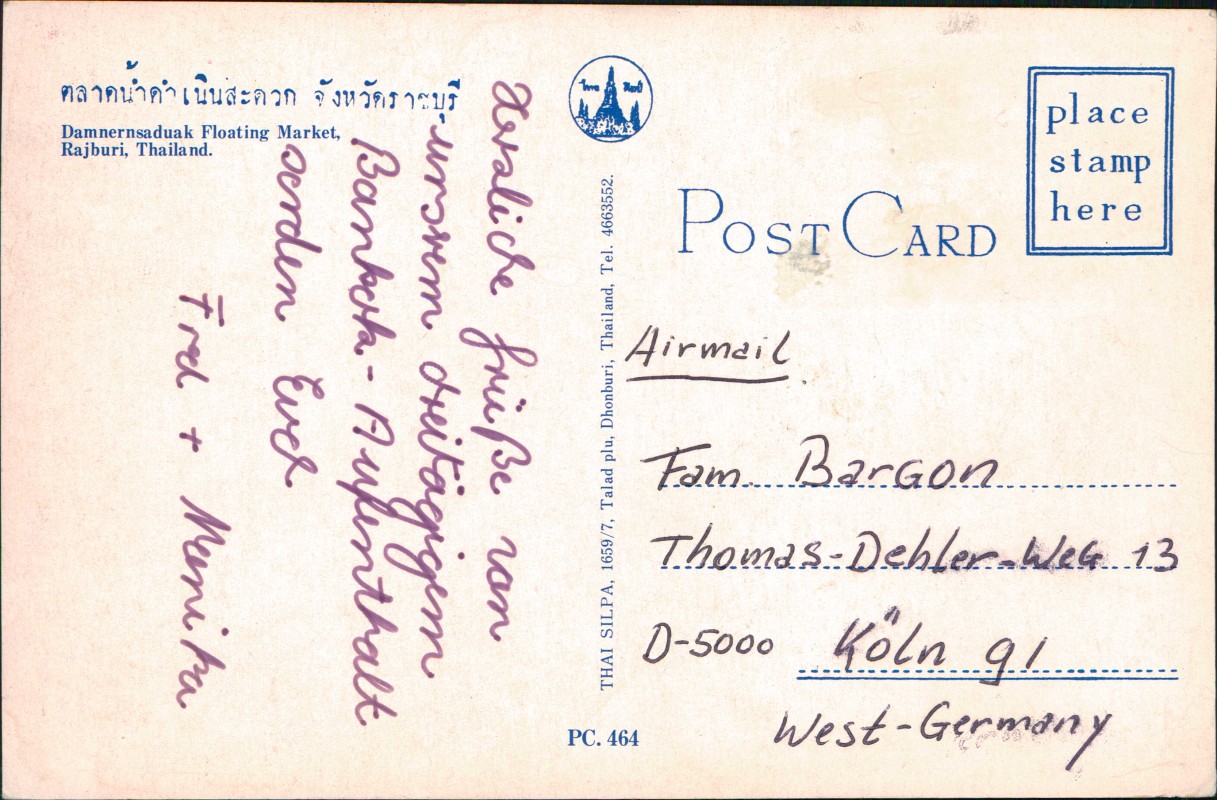 ตลาดน้ำดำเนินสะดวก จังหวัดราชบุรี
Damnernsaduak Floating Market,
Rajburi, Thailand.
Herzliche Grüße von
unserem dreitägigem
Bankok-Aufenthalt
senden Euch
Fred + Monika
THAI SILPA, 1659/7, Talad plu, Dhonburi, Thailand, Tel. 4663552.
PC. 464
POST CARD
place
stamp
here
Airmail
Fam. Bargon
Thomas-Dehler-Weg 13
D-5000 Köln 91
West-Germany